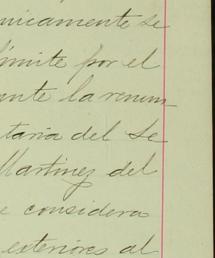 nicamente se
límite por el
ante la renun-
taria del Se
Martinez del
e considera
exteriores al